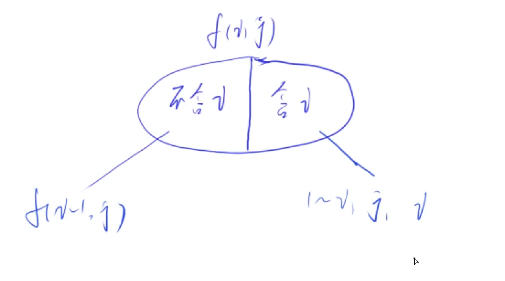 f(i, j)
不含i 含i
f(i-1, j)
1~i, j, i